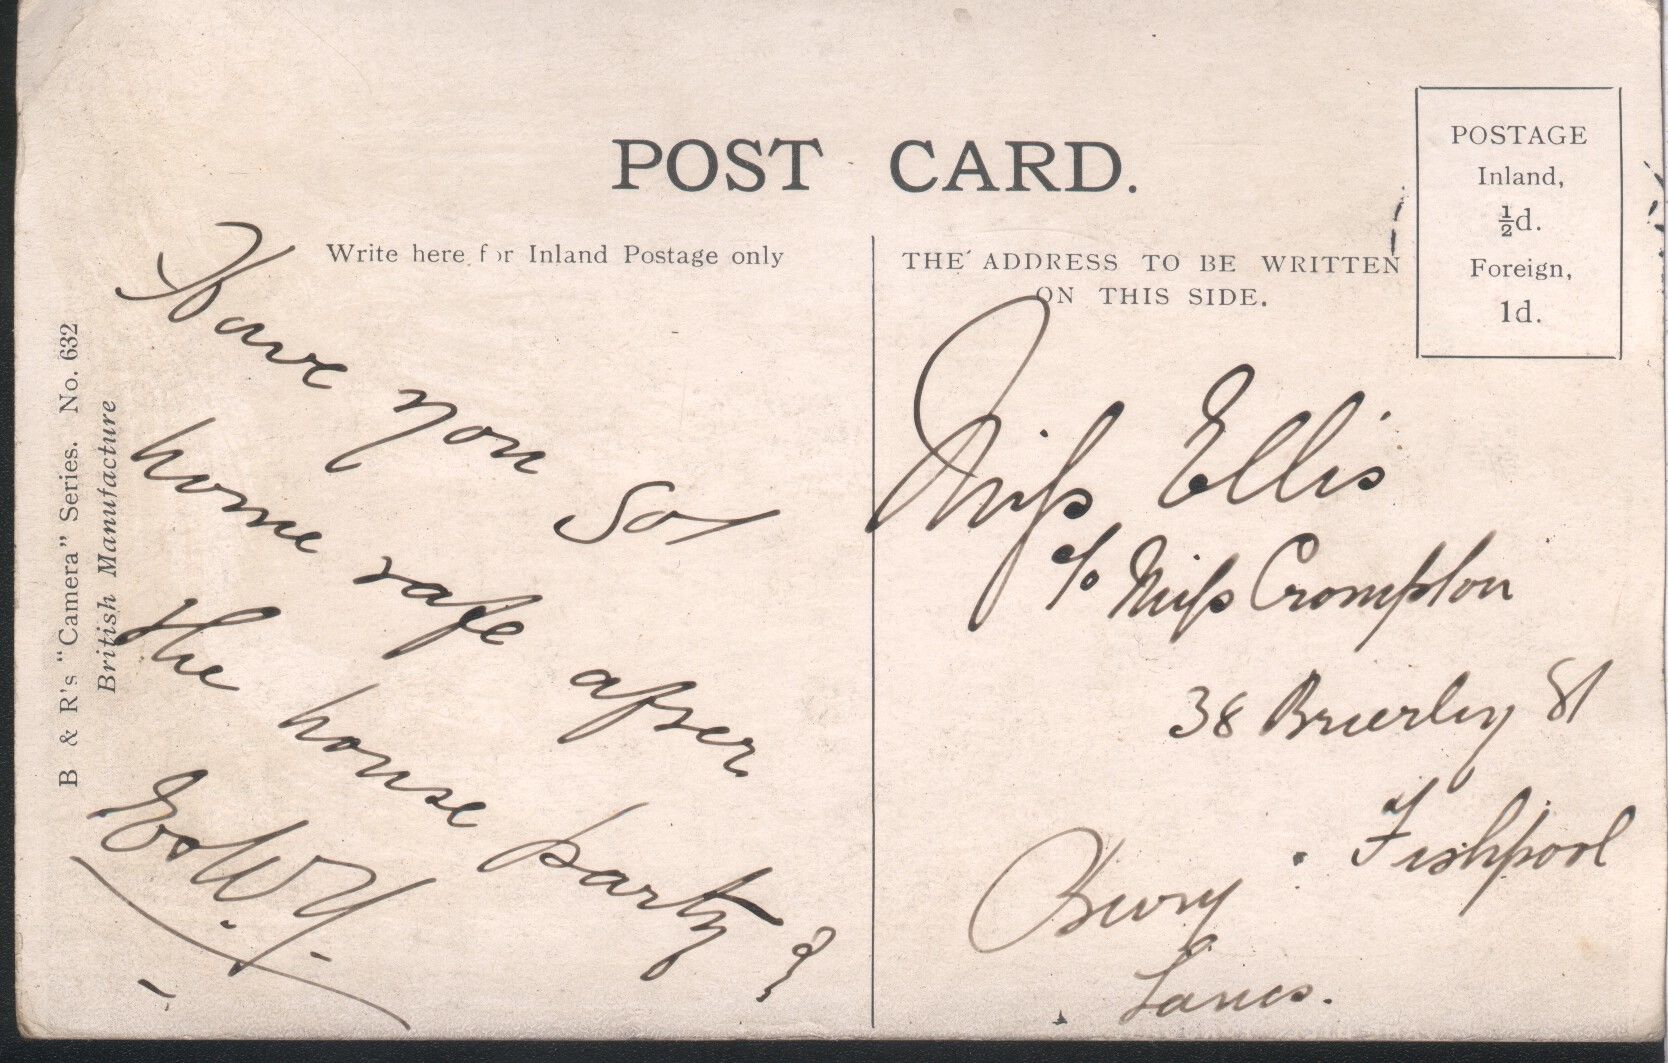 POST CARD.
POSTAGE
Inland,
½d.
Foreign,
1d.
Write here for Inland Postage only
THE ADDRESS TO BE WRITTEN
ON THIS SIDE.
B & R's "Camera" Series. No. 632
British Manufacture
Have you got
home safe after
the house party?
Miss Ellis
c/o Miss Crompton
38 Brierley St
Fishpool
Bury
Lancs.